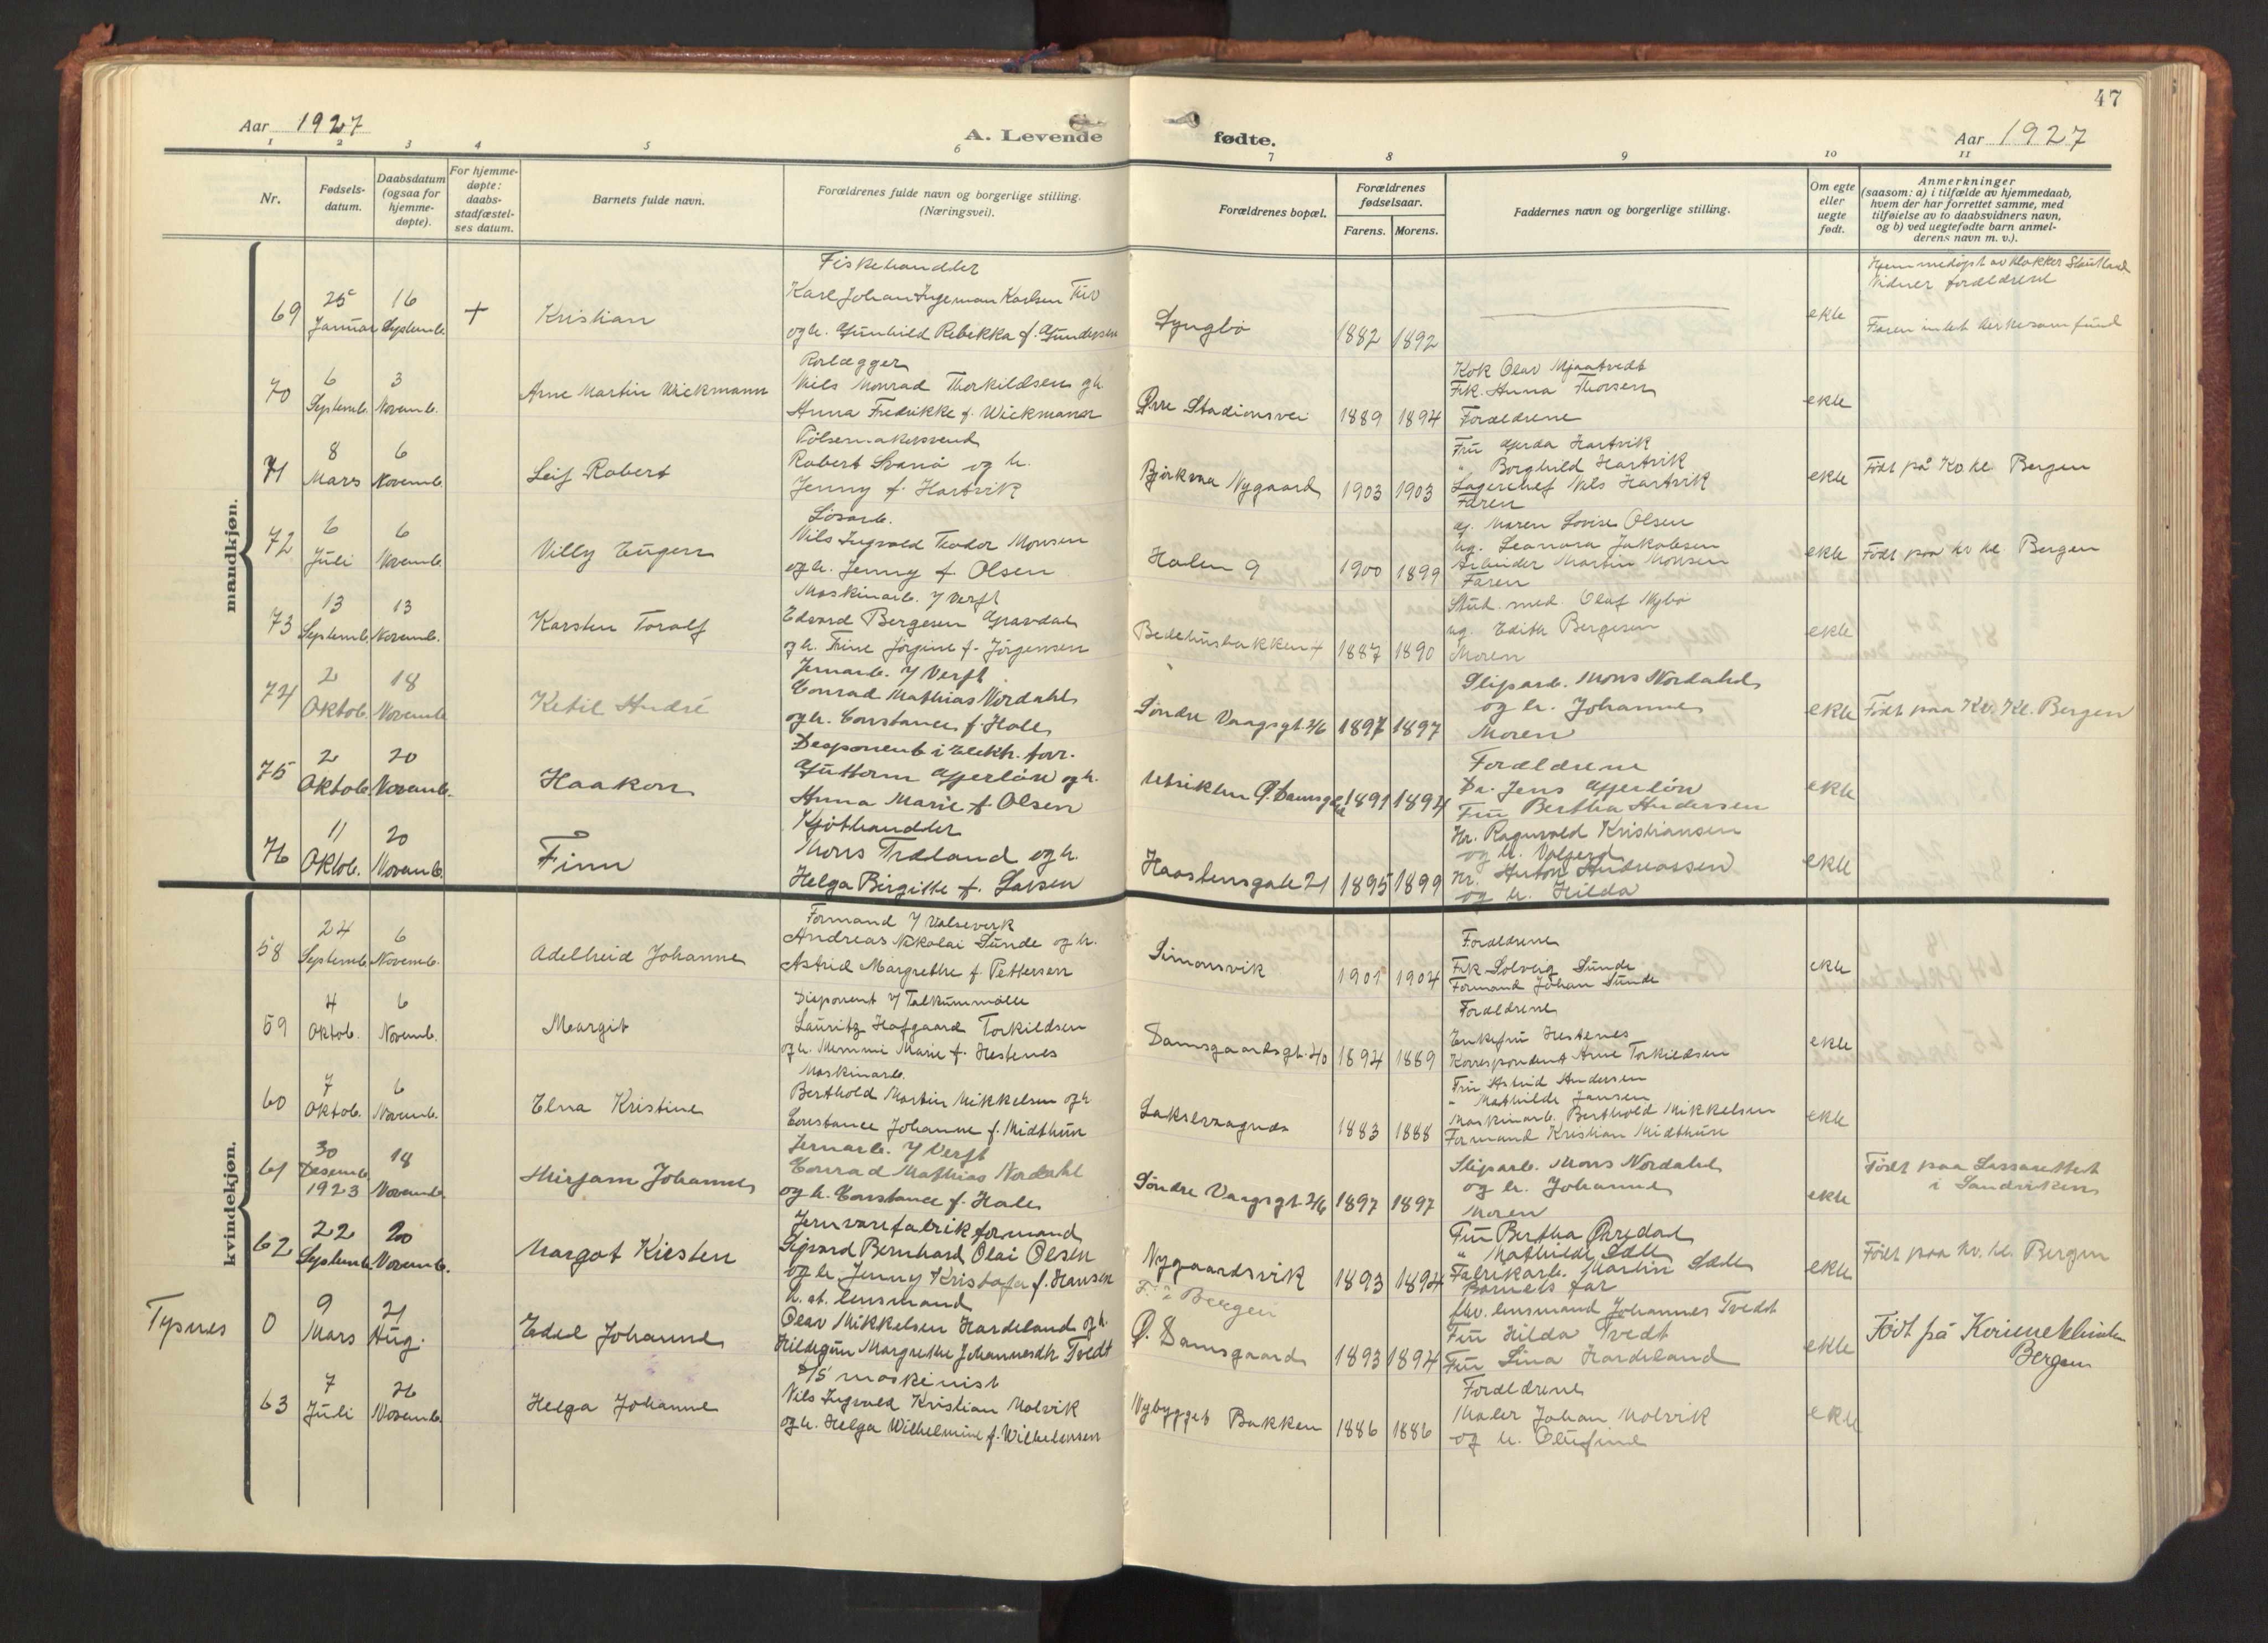 47
Aar 1927
A. Levende
fødte.
Aar 1927
1 2 3 4 5 6 7 8 9 10 11
Nr.
Fødsels-
datum.
Daabsdatum
(ogsaa for
hjemme-
døpte).
For hjemme-
døpte:
daabs-
stadfæstel-
ses datum.
Barnets fulde navn.
Forældrenes fulde navn og borgerlige stilling.
(Næringsvei).
Forældrenes bopæl.
Forældrenes
fødselsaar.
Farens. Morens.
Faddernes navn og borgerlige stilling.
Om egte
eller
uegte
født.
Anmerkninger
(saasom: a) i tilfælde av hjemmedaab,
hvem der har forrettet samme, med
tilføielse av to daabsvidners navn,
og b) ved uegtefødte barn anmel-
derens navn m. v.).
mandkjøn.
69
25
Januar
16
Septemb.
+
Kristian
Fiskehandler
Karl Johan Ingeman Karlsen
og h. Gunhild Rebekka f. Gundersen
Lyngbø
1882 1892
ekte
Hjemmedøpt av klokker
Vidner forældrene
70
6
Septemb.
3
Novemb.
Arne Martin Wickmann
Rørlægger
Nils Monrad Thorkildsen og h.
Anna Fredrikke f. Wickmann
Øvre Stadionsvei
1889 1894
Kok Olav Mjaatvedt
Frk. Anna Thorsen
Forældrene
ekte
71
8
Mars
6
Novemb.
Leif Robert
Pølsemakersvend
Robert Svanø og h.
Jenny f. Hartvik
Bjørkvaa Nygaard
1903 1903
Fru Gjerda Hartvik
" Borghild Hartvik
Lagerchef Nils Hartvik
Faren
ekte
Født på Kv. kl. Bergen
72
6
Juli
6
Novemb.
Villy Eugen
Løsarb.
Nils Ingvald Teodor Monsen
og h. Jenny f. Olsen
Holen 9
1900 1899
g. Maren Lovise Olsen
ug. Leonora Jakobsen
Arbeider Martin Monsen
Faren
ekte
Født paa kv. kl. Bergen
73
13
Septemb.
13
Novemb.
Karsten Toralf
Maskinarb. v/ Verft
Edvard Bergesen Gravdal
og h. Trine Jørgine f. Jørgensen
Bedehusbakken 4
1887 1890
Stud. med. Olaf Mybø
ug. Edith Bergesen
Moren
ekte
74
2
Oktob.
18
Novemb.
Ketil André
Jernarb. v/ Verft
Conrad Mathias Nordahl
og h. Constance f. Hole
Søndre Vaagsgt. 26
1897 1897
Sliparb. Mons Nordahl
og h. Johanne
Moren
ekte
Født paa Kv. Kl. Bergen
75
2
Oktob.
20
Novemb.
Haakon
Disponent i Elektr. forr.
Guttorm Gjerløw og h.
Anna Marie f. Olsen
1891 1894
Forældrene
Dr. Jens Gjerløw
Fru Bertha Andersen
ekte
76
11
Oktob.
20
Novemb.
Finn
Kjøthandler
Mons Træland og h.
Helga Birgitte f. Larsen
Haastensgate 21
1895 1899
Hr. Ragnvald Kristiansen
og h. Valgerd
Hr. Anton Andreassen
og h. Hilda
ekte
kvindekjøn.
58
24
Septemb.
6
Novemb.
Adelheid Johanne
Formand v/ Valseverk
Andreas Nikolai Sunde og h.
Astrid Margrethe f. Pettersen
Simonsvik
1901 1904
Forældrene
Frk Solveig Sunde
Formand Johan Sunde
ekte
59
4
Oktob.
6
Novemb.
Margit
Disponent v/ Talkummølle
Lauritz Hofgaard Torkildsen
og h. Mimmi Marie f. Hestenes
Damsgaardsgt. 40
1894 1889
Forældrene
Enkefru Hestenes
Korrespondent Arne Torkildsen
ekte
60
7
Oktob.
6
Novemb.
Elna Kristine
Maskinarb.
Berthold Martin Mikkelsen og h.
Constance Johanne f. Midthun
Laksevaagnes
1883 1888
Fru Astrid Andersen
" Mathilde Jansen
Maskinarb. Berthold Mikkelsen
Formand Kristian Midthun
ekte
61
30
Desemb.
1923
18
Novemb.
Mirjam Johanne
Jernarb. v/ Verft
Conrad Mathias Nordahl
og h. Constance f. Hole
Søndre Vaagsgt. 26
1897 1897
Sliparb. Mons Nordahl
og h. Johanne
Moren
ekte
Født paa Lassarettet
i Sandviken
62
22
Septemb.
20
Novemb.
Margot Kirsten
Jernvarefabrikformand
Sigvard Bernhard Olai Olsen
og h. Jenny Kristofa f. Hansen
Nygaardsvik
1893 1894
Fru Bertha Øvredal
" Mathilde Sæle
Fabrikarb. Martin Sæle
Barnets far
ekte
Født paa kv. kl. Bergen
Tysnes
0
9
Mars
21
Aug.
Edel Johanne
h. at. lensmand
Olav Mikkelsen Hardeland og h.
Hildegun Margrethe Johannesdtr Tvedt
F. i Bergen
Ø. Damsgaard
1893 1894
fhv. lensmand Johannes Tvedt
Fru Hilda Tvedt
Fru Lina Hardeland
ekte
Født på Kvinneklinikken
Bergen
63
7
Juli
26
Novemb.
Helga Johanne
D/S maskinist
Nils Ingvald Kristian Molvik
og h. Helga Wilhelmine f. Wilhelmsen
Nybygget Bakken
1886 1886
Forældrene
Maler Johan Molvik
og h. Olufine
ekte